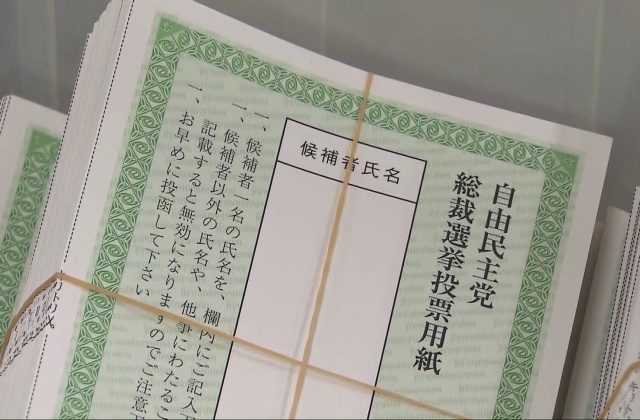 自由民主党
総裁選挙投票用紙
候補者氏名
一、候補者一名の氏名を、欄内にご記入
一、候補者以外の氏名や、他事にわたるこ
記載すると無効になりますのでご注意
一、お早めに投函して下さい